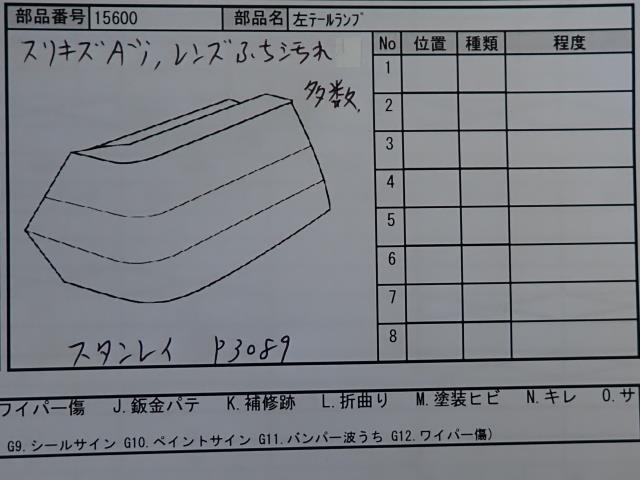 部品番号 15600 部品名 左テールランプ
スリキズAベリ, レンズふち汚れ
多数.
No 位置 種類 程度
1
2
3
4
5
6
7
8
スタンレイ P3089
ワイパー傷 J.鈑金パテ K.補修跡 L.折曲り M.塗装ヒビ N.キレ O.サ
G9.シールサイン G10.ペイントサイン G11.バンパー波うち G12.ワイパー傷)